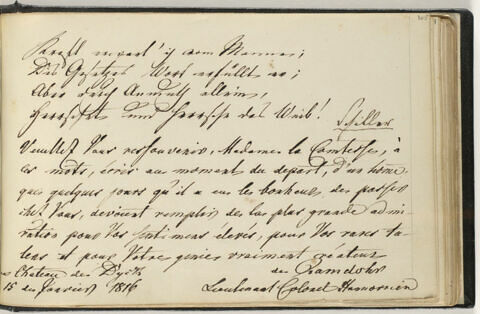 Kraft erwart' ich vom Manne;
Des Gesetzes Wort erfüllt er;
Aber durch Anmuth allein,
Herrschet und herrsche das Weib!
Schiller
Veuillez Vous ressouvenir, Madame la Comtesse, à
ces mots, écris au moment du depart, d'un homme,
que quelques jours qu'il a eu le bonheur, de passer
chez Vous, devoient remplir de la plus grande admi-
ration pour Vos sentimens élevés, pour Vos rares ta-
lens et pour Votre genie vraiment créateur
Chateau de Dyck de Ramdohr
15 de Fevrier 1816 Lieutenant Colonel Hanovrien